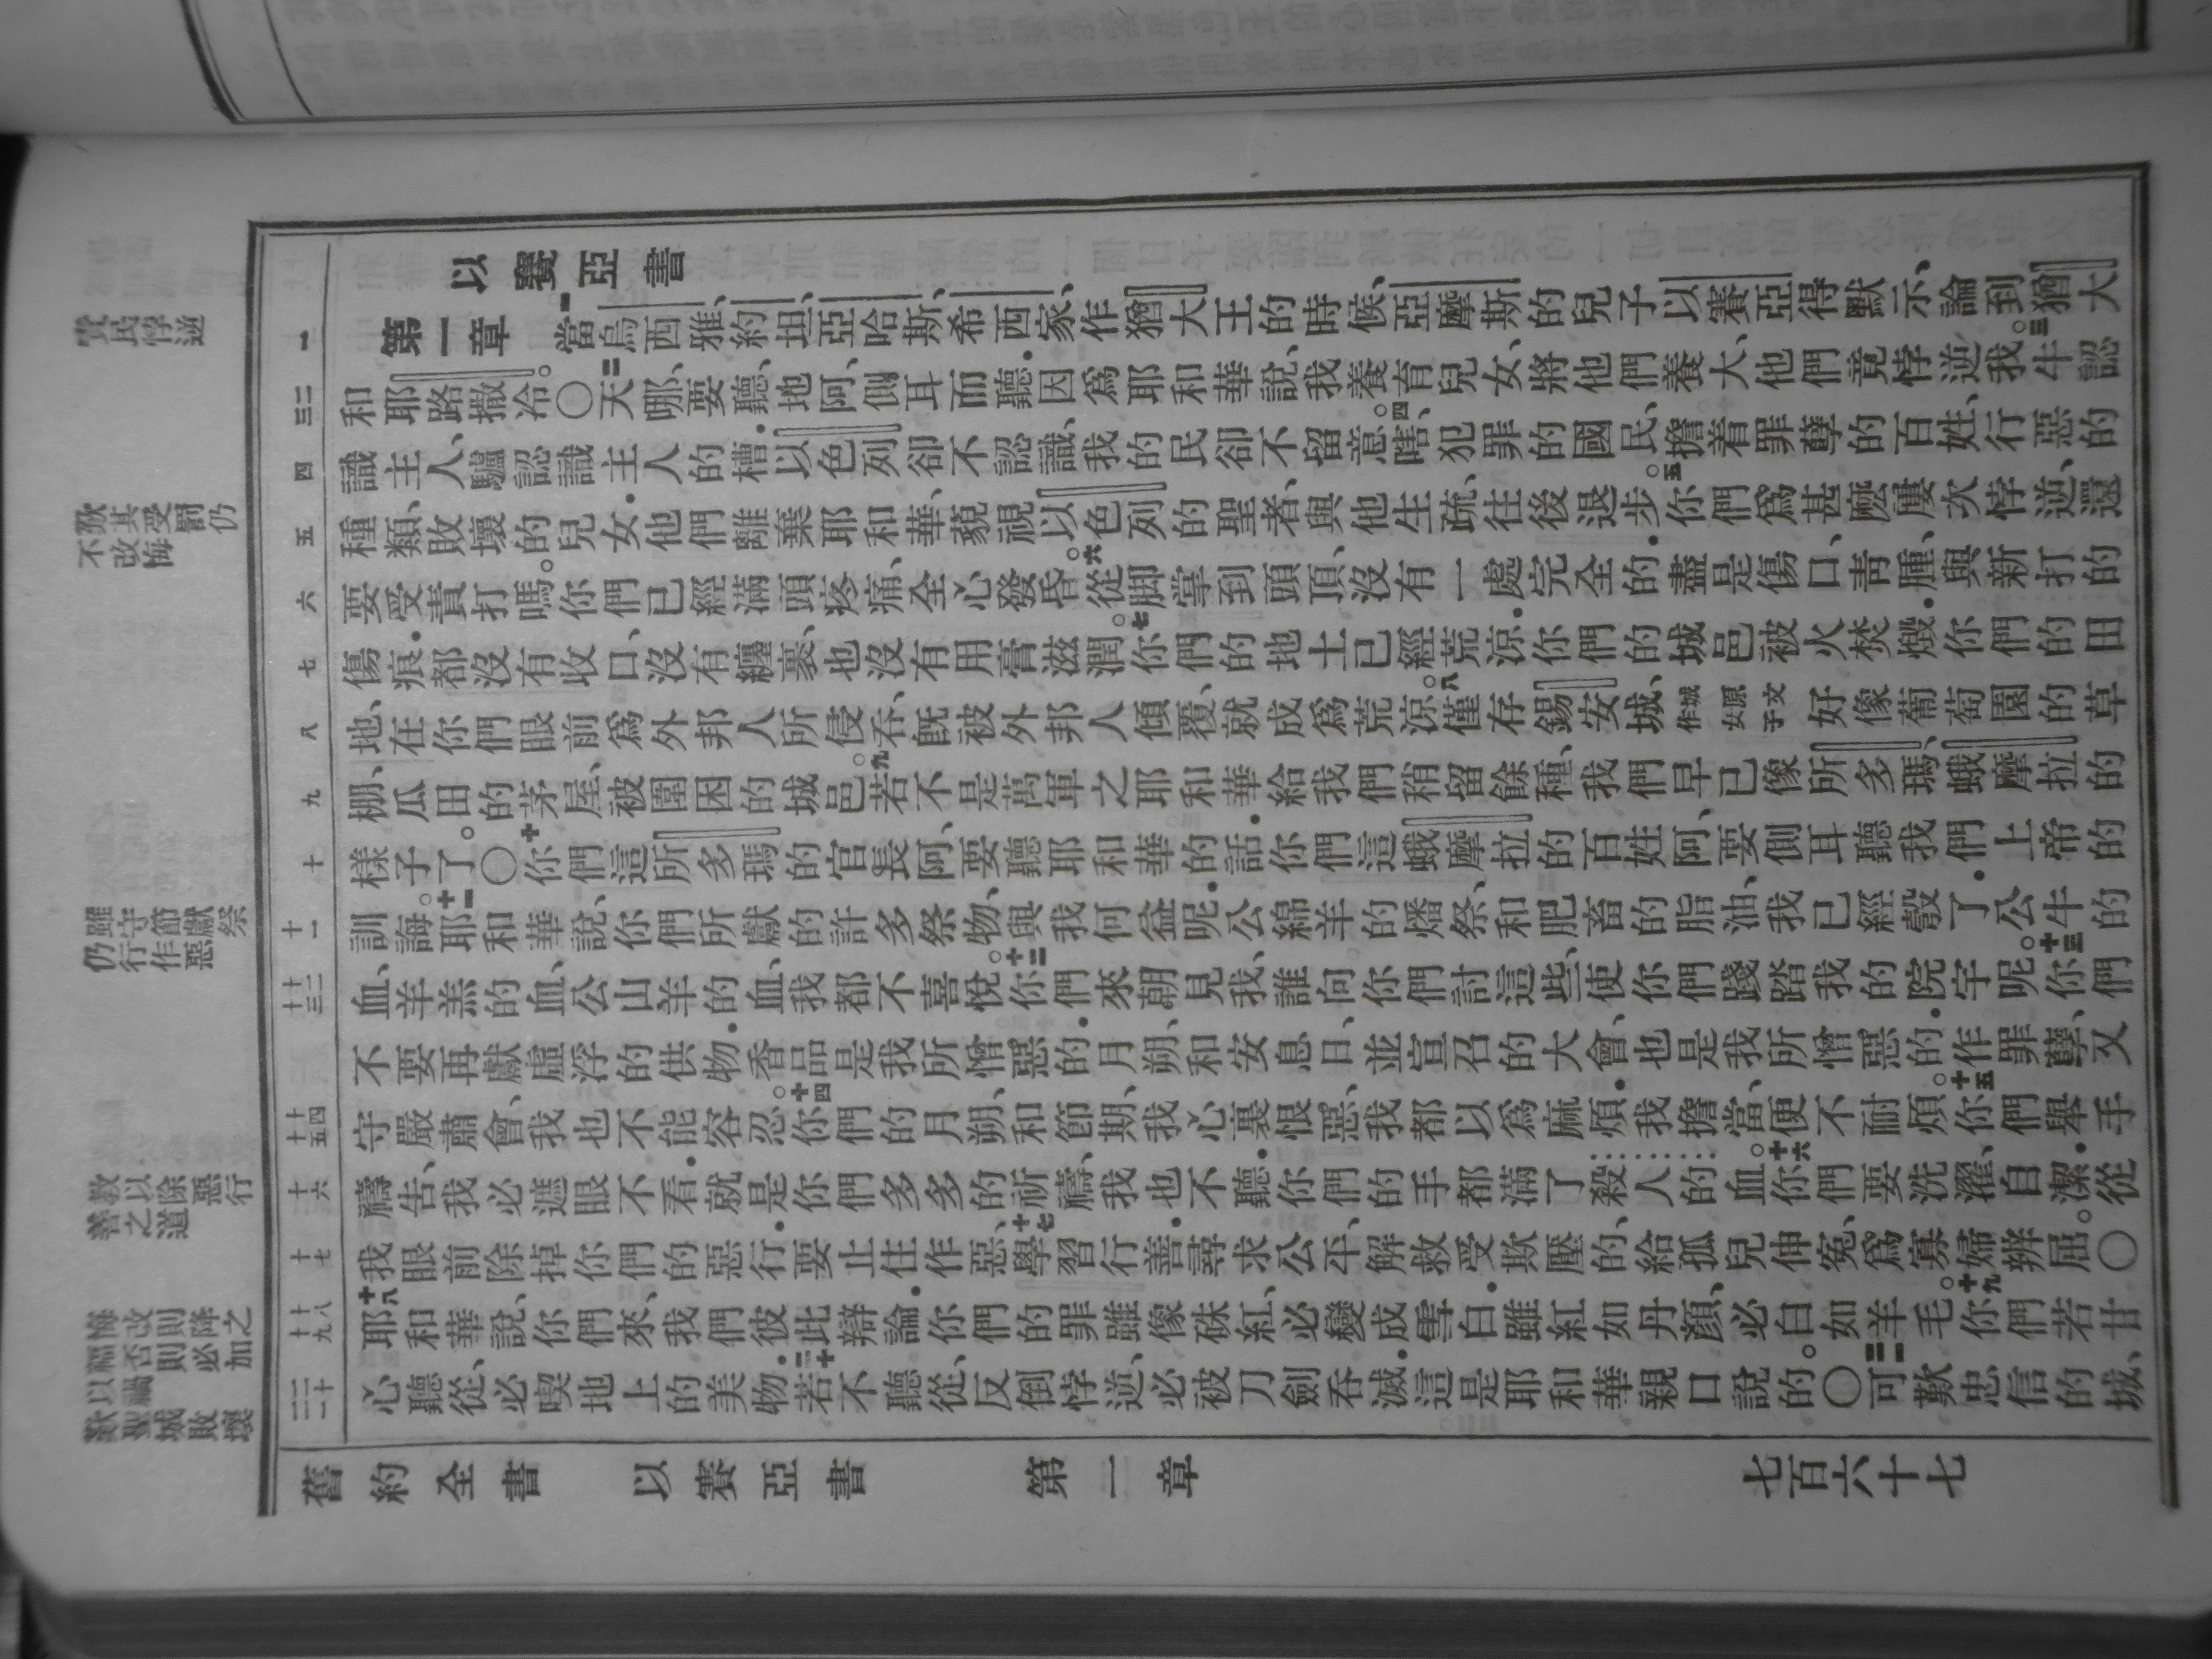 以賽亞書
第一章 一當烏西雅、約坦、亞哈斯、希西家、作猶大王的時候、亞摩斯的兒子以賽亞得默示、論到猶大
和耶路撒冷。〇二天哪、要聽、地阿、側耳而聽.因爲耶和華說、我養育兒女、將他們養大、他們竟悖逆我。三牛認
識主人、驢認識主人的槽.以色列卻不認識、我的民卻不留意。四嗐、犯罪的國民、擔着罪孽的百姓、行惡的
種類、敗壞的兒女.他們離棄耶和華、藐視以色列的聖者、與他生疏、往後退步。五你們爲甚麽屢次悖逆、還
要受責打嗎。你們已經滿頭疼痛、全心發昏。六從脚掌到頭頂、沒有一處完全的.盡是傷口、靑腫、與新打的
傷痕.都沒有收口、沒有纏裹、也沒有用膏滋潤。七你們的地土已經荒涼.你們的城邑被火焚燬.你們的田
地、在你們眼前爲外邦人所侵吞、旣被外邦人傾覆、就成爲荒涼。八僅存錫安城、城原文作女子好像葡萄園的草
棚、瓜田的茅屋、被圍困的城邑。九若不是萬軍之耶和華給我們稍留餘種、我們早已像所多瑪、蛾摩拉的
樣子了。〇十你們這所多瑪的官長阿、要聽耶和華的話.你們這蛾摩拉的百姓阿、要側耳聽我們上帝的
訓誨。十一耶和華說、你們所獻的許多祭物、與我何益呢.公綿羊的燔祭、和肥畜的脂油、我已經彀了.公牛的
血、羊羔的血、公山羊的血、我都不喜悅。十二你們來朝見我、誰向你們討這些、使你們踐踏我的院宇呢。十三你們
不要再獻虛浮的供物.香品是我所憎惡的.月朔、和安息日、並宣召的大會、也是我所憎惡的.作罪孽、又
守嚴肅會、我也不能容忍。十四你們的月朔、和節期、我心裏恨惡、我都以爲麻煩.我擔當、便不耐煩。十五你們舉手
禱告、我必遮眼不看.就是你們多多的祈禱、我也不聽.你們的手都滿了殺人的血。十六你們要洗濯、自潔.從
我眼前除掉你們的惡行.要止住作惡、十七學習行善.尋求公平、解救受欺壓的、給孤兒伸冤、爲寡婦辨屈。〇
十八耶和華說、你們來、我們彼此辯論.你們的罪雖像硃紅、必變成雪白.雖紅如丹顏、必白如羊毛。十九你們若甘
心聽從、必喫地上的美物.二十若不聽從、反倒悖逆、必被刀劍吞滅.這是耶和華親口說的。〇二一可歎忠信的城、
責民悖逆
歎其受罰仍
不改悔
雖守節獻祭
仍行作惡
教以除惡行
善之道
悔改則降之
福否則必加
以禍
歎聖城敗壞
一
二
三
四
五
六
七
八
九
十
十一
十二
十三
十四
十五
十六
十七
十八
十九
二十
二一
舊約全書 以賽亞書 第一章 七百六十七